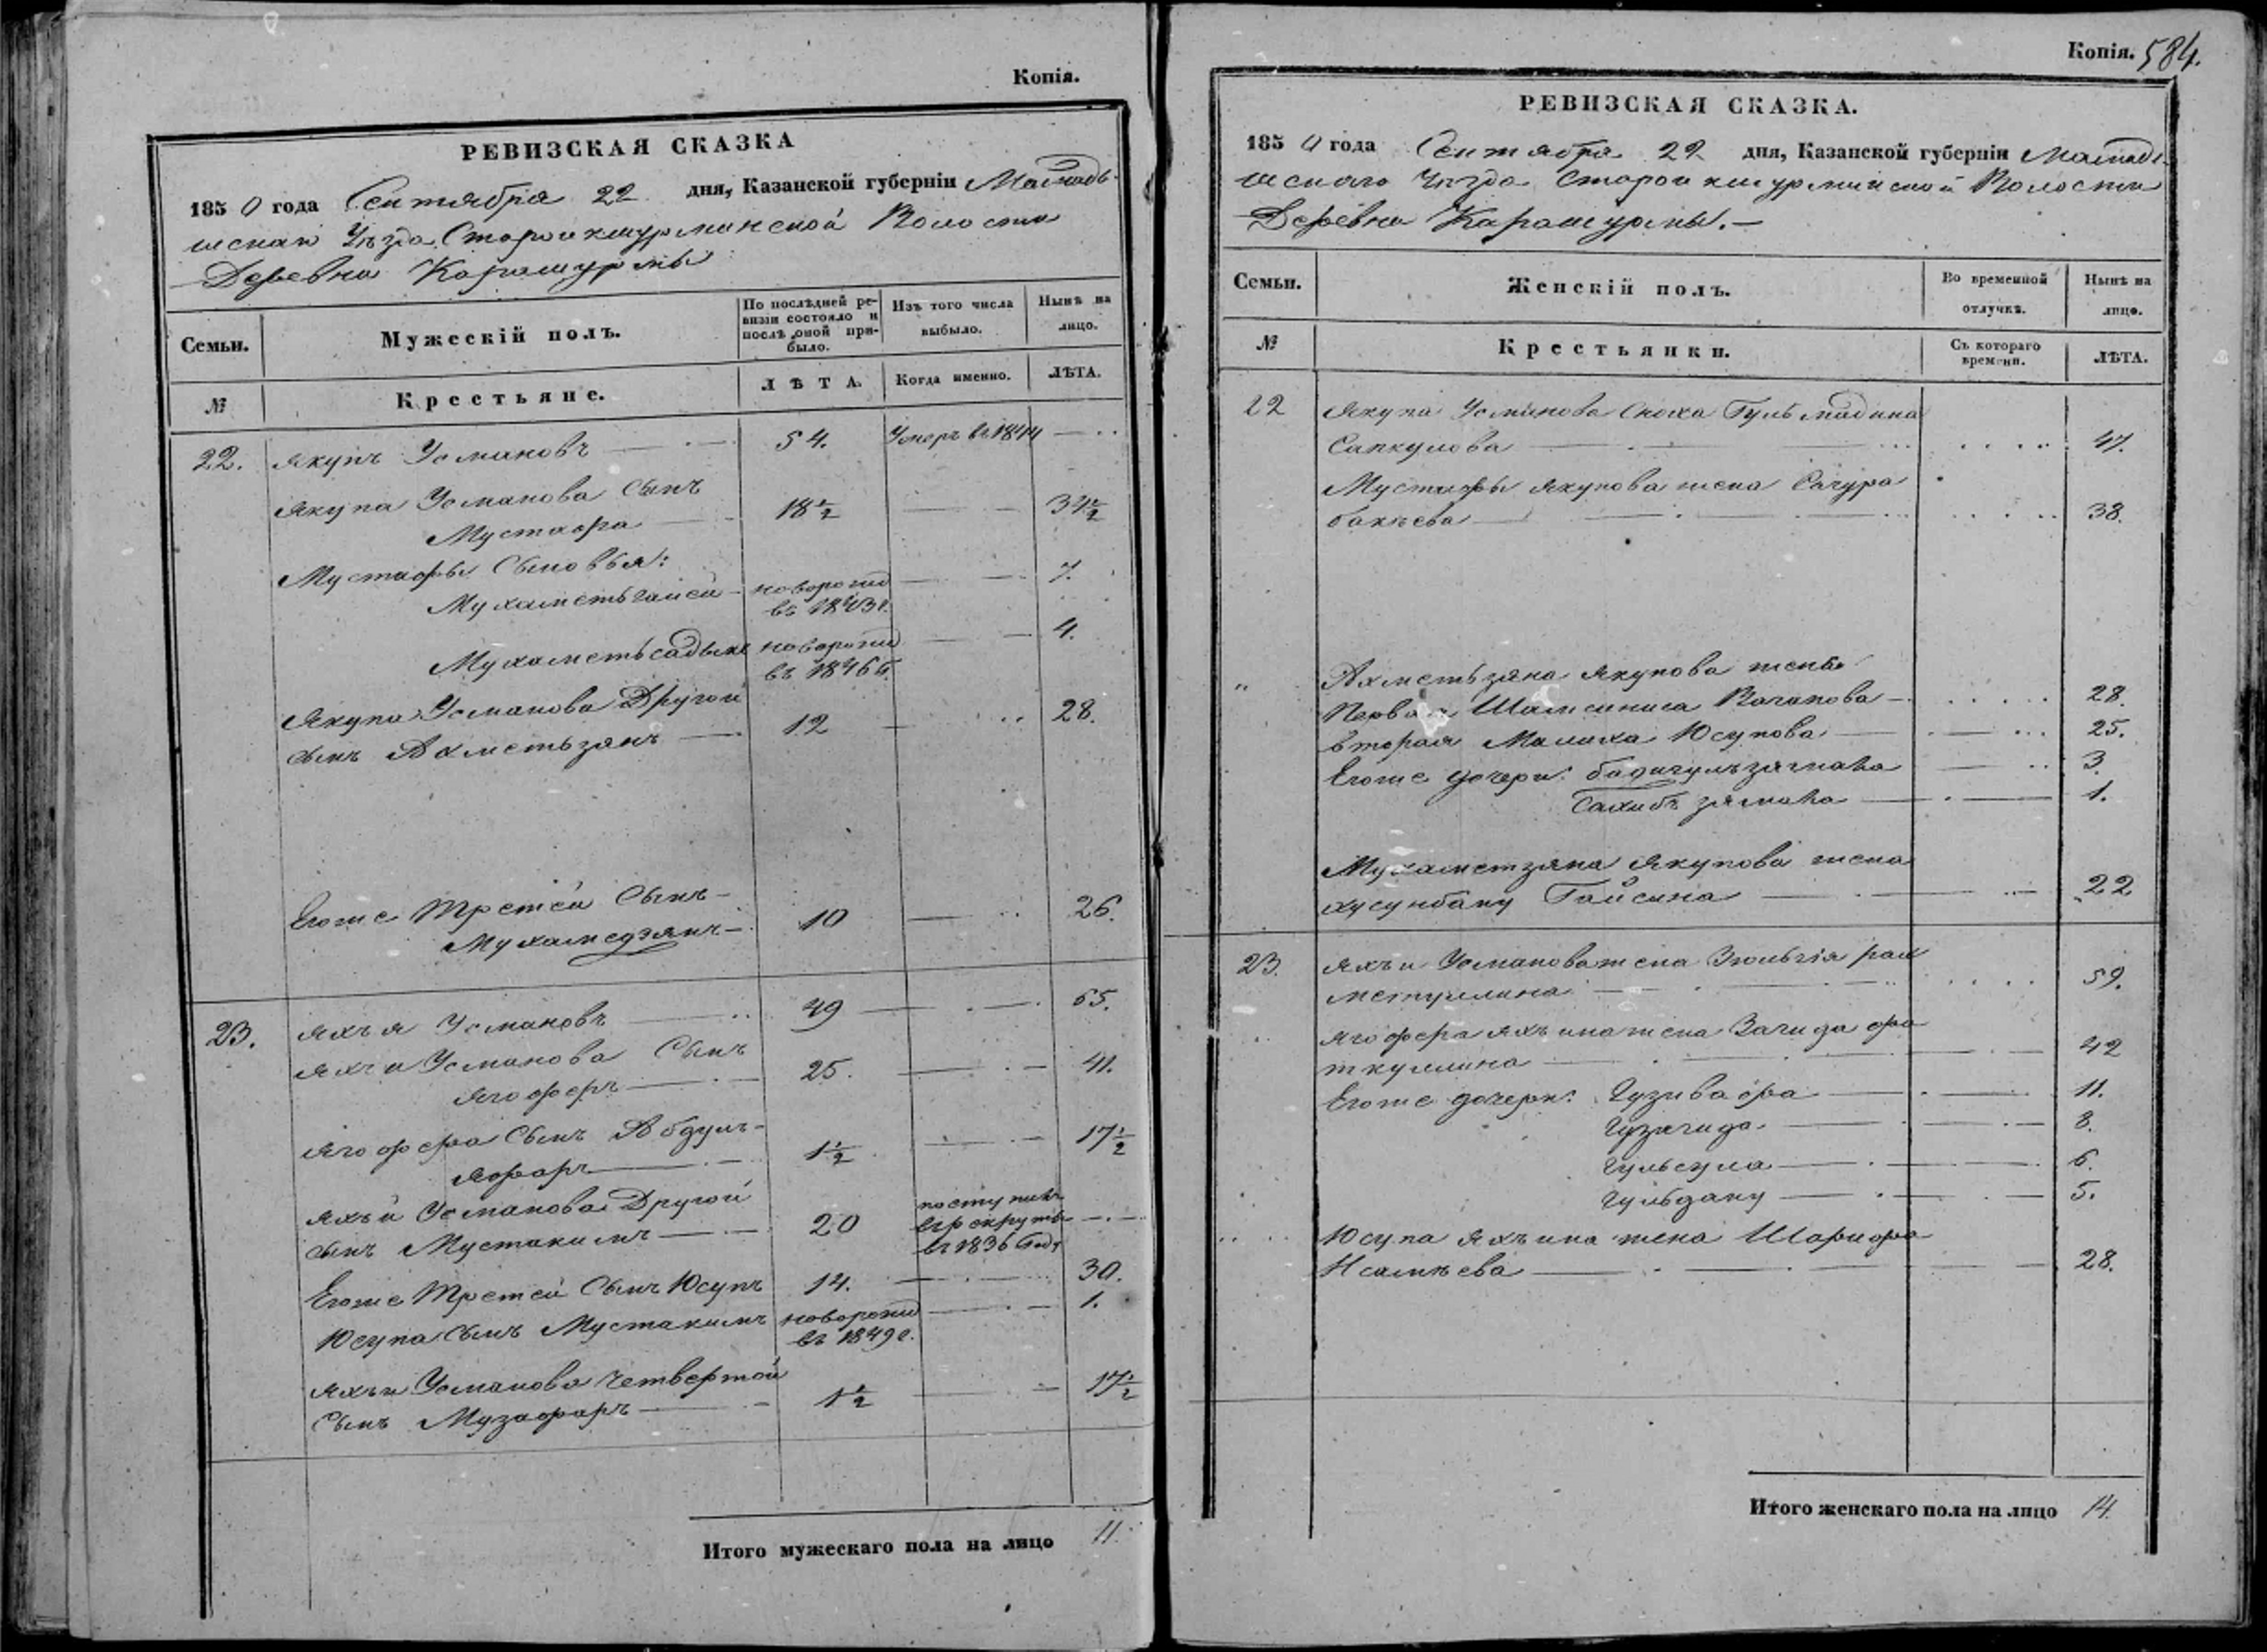 Копія.
РЕВИЗСКАЯ СКАЗКА
1850 года Сентября 22 дня, Казанской губерніи Мамадъ-
шскаго Уѣзда Староикшурминской Волости
Деревни Карашурмы
Семьи. Мужескій полъ. По послѣдней ре-визіи состояло и послѣ оной при-было. Изъ того числа выбыло. Нынѣ на лицо.
№ Крестьяне. ЛѢТА. Когда именно. ЛѢТА.
22. Якупъ Усмановъ 54. Умеръ въ 1844
Якупа Усманова сынъ
Мустафа 18½ 34½
Мустафы Сыновья:
Мухаметьгайси новорожд 7.
въ 1843 г.
Мухаметьсадыкъ новорожд 4.
въ 1846 г.
Якупа Усманова Другой
сынъ Ахметьзянъ 12 28.
Егоже Третей Сынъ
Мухамедзянъ 10 26.
23. Яхъя Усмановъ 49 65.
Яхъи Усманова Сынъ
Ягоферъ 25. 41.
Ягофера Сынъ Абдулъ-
Яфаръ 1½ 17½
Яхъи Усманова Другой поступилъ
сынъ Мустакимъ 20 въ рекруты
въ 1836 году
Егоже Третей Сынъ Юсупъ 14. 30.
Юсупа Сынъ Мустакимъ новорожд 1.
въ 1849 г.
Яхъи Усманова Четвертой
Сынъ Музафаръ 1½ 17½
Итого мужескаго пола на лицо 11.
Копія. 584.
РЕВИЗСКАЯ СКАЗКА.
1850 года Сентября 22 дня, Казанской губерніи Мамады-
шскаго Уѣзда Староикшурминской Волости
Деревни Карашурмы.
Семьи. Женскій полъ. Во временной отлучкѣ. Нынѣ на лицо.
№ Крестьянки. Съ котораго времени. ЛѢТА.
22 Якупа Усманова сноха Гульмадина
Сапкулова 47.
Мустафы Якупова жена Сагура
бакѣева 38.
" Ахметьзяна Якупова жены
Первая Шамсиниса Вагапова 28.
вторая Малиха Юсупова 25.
Егоже дочери: бадигульзямала 3.
Сахибъ зямала 1.
Мухаметзяна Якупова жена
хусунбану Гайсина 22
23. Яхъи Усманова жена Зюльгія рах
метуллина 59.
Ягофера яхъина жена Загида фа
ткуллина 42
Егоже дочери: Гузивафа 11.
Гузягида 8.
Гульсула 6.
Гульбану 5.
Юсупа яхъина жена Шарифа
Исамѣева 28.
Итого женскаго пола на лицо 14.